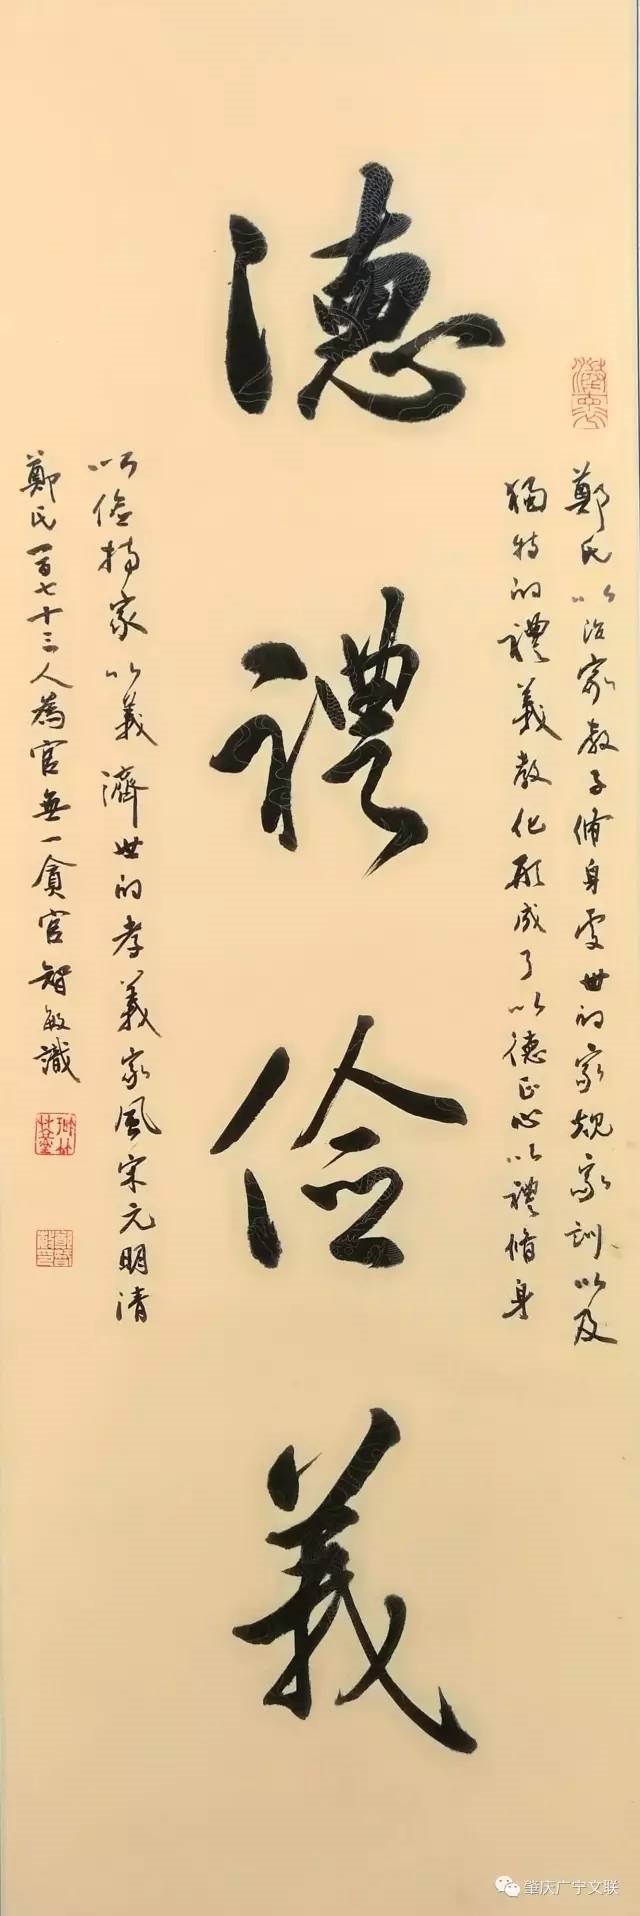 德禮儉義
鄭氏以治家教子脩身處世的家規家訓以及
獨特的禮義教化形成了以德正心以禮脩身
以儉持家以義濟世的孝義家風宋元明清
鄭氏一百七十三人為官無一貪官智敏識
肇庆广宁文联